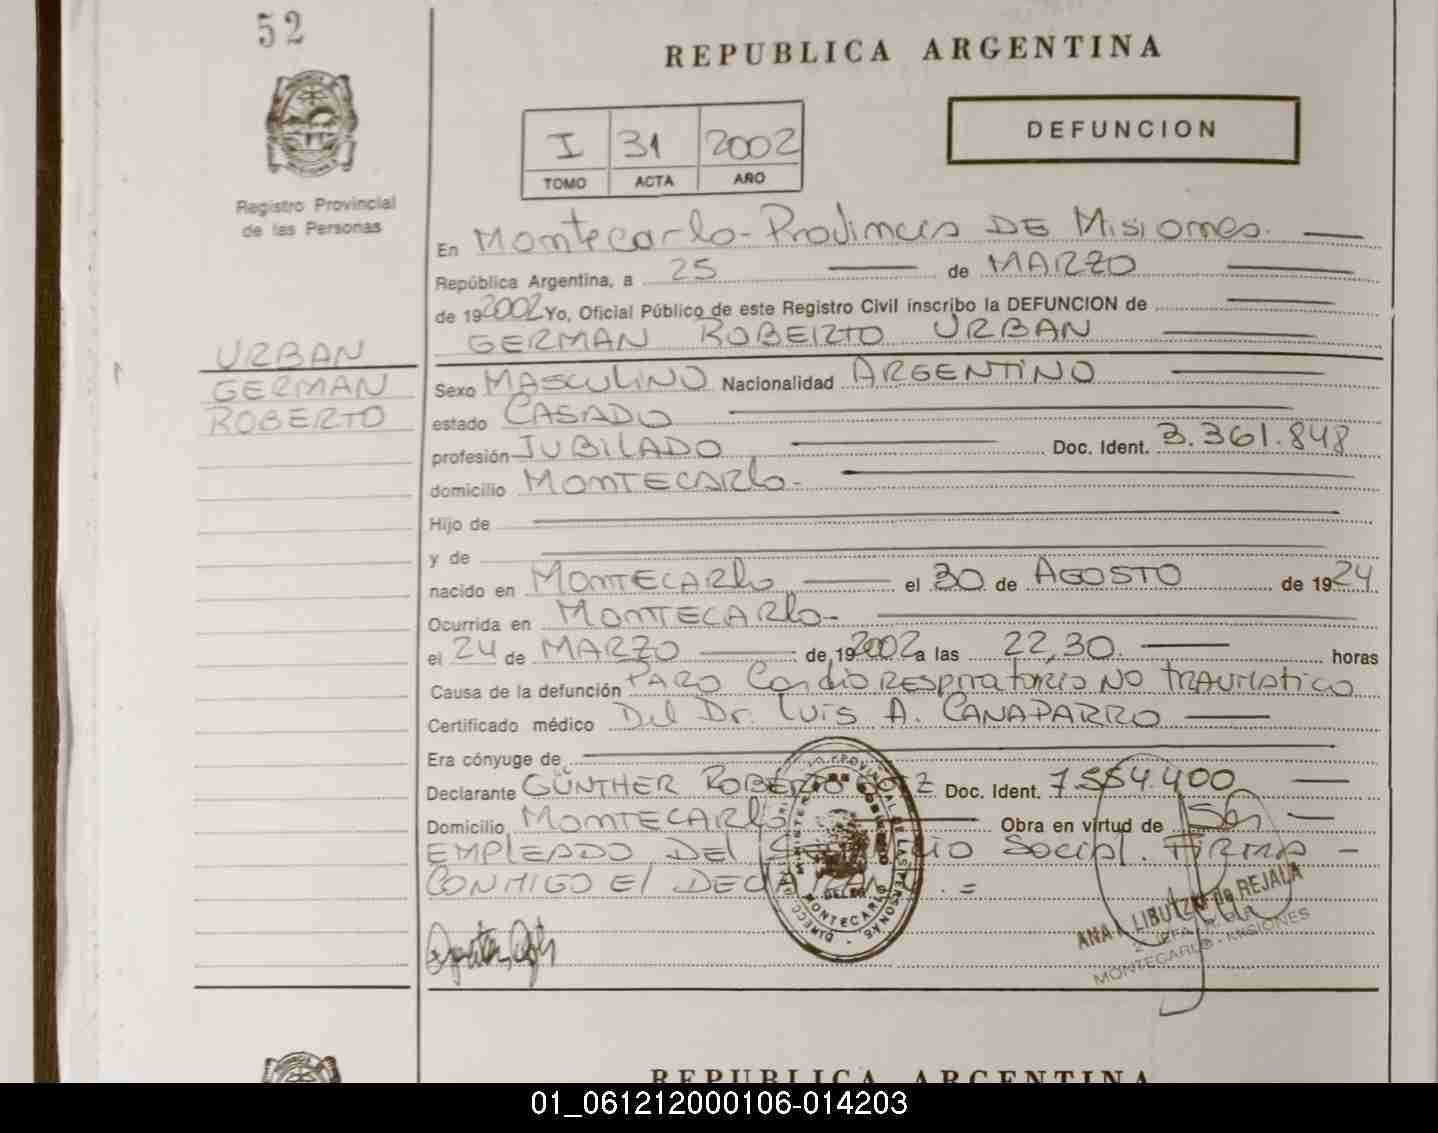 52
REPUBLICA ARGENTINA
I 31 2002
TOMO ACTA AÑO
DEFUNCION
Registro Provincial
de las Personas
En Montecarlo - Provincia DE Misiones.
República Argentina, a 25 de MARZO
de 192002 Yo, Oficial Público de este Registro Civil inscribo la DEFUNCION de
GERMAN ROBERTO URBAN
URBAN
GERMAN
ROBERTO
Sexo MASCULINO Nacionalidad ARGENTINO
estado CASADO
profesión JUBILADO Doc. Ident. 3.361.848
domicilio MONTECARlo-
Hijo de
y de
nacido en MONTECARlo el 30 de AGOSTO de 1924
Ocurrida en MONTECARlo-
el 24 de MARZO de 192002 a las 22,30. horas
Causa de la defunción PARO CardioRESPiratorio NO TRAUMATICO
Certificado médico Del Dr. Luis A. CANAPARRO
Era cónyuge de
Declarante GÜNTHER ROBERTO Doc. Ident. 7.554.400
Domicilio MONTECARlo Obra en virtud de Ser
EMPLEADO DEL Social. FIRMA -
CONMIGO El . =
MONTECARLO
ANA LIBUTZKI de REJALA
MONTECARLO - MISIONES
REPUBLICA ARGENTINA
01_061212000106-014203